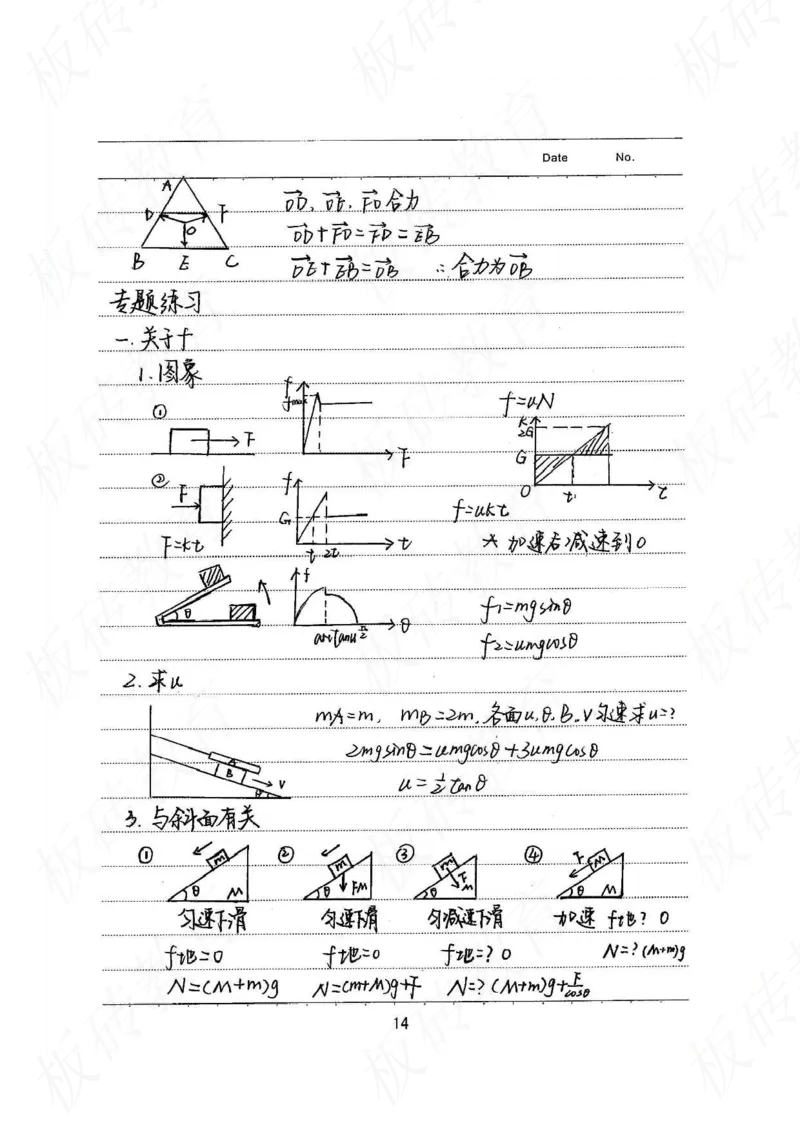 Date No.
A
D F
O
B E C
OD、OE、FO合力
OD+FO=FD=EB
OE+EB=OB ∴合力为OB
专题练习
一.关于f
1.图象
① F
f fmax F
f=uN
② F
F=kt
f G t 2t t
K 2G G O t1 t
f=ukt
* 加速后减速到0
θ
f arctanu π/2 θ
f1=mgsinθ
f2=umgcosθ
2.求u
A B V θ
mA=m, mB=2m,各面u,θ.B.V匀速求u=?
2mgsinθ=umgcosθ+3umgcosθ
u=1/2tanθ
3.与斜面有关
① m θ M
② m FM θ
③ m F θ M
④ F M θ M
匀速下滑 匀速下滑 匀减速下滑 加速 f地? 0
f地=0 f地=0 f地=? 0 N=? (M+m)g
N=(M+m)g N=(m+M)g+F N=? (M+m)g+F/cosθ
14
板砖教育